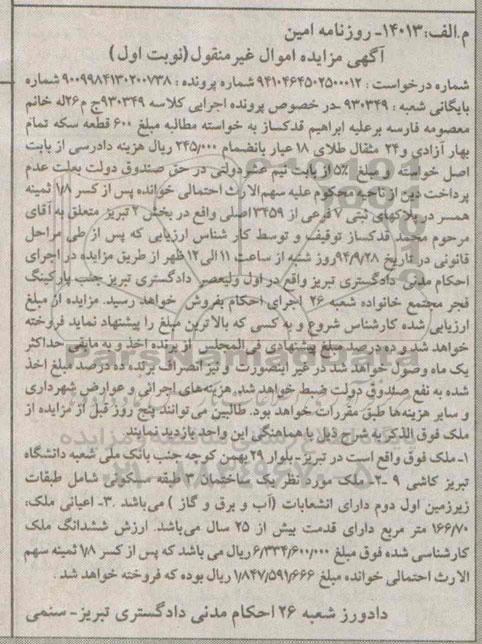 م.الف: ۱۴۰۱۳- روزنامه امین
آگهی مزایده اموال غیرمنقول (نوبت اول)
شماره درخواست: ۹۴۱۰۴۶۴۵۰۲۵۰۰۰۱۲ شماره پرونده: ۹۰۰۹۹۸۴۱۳۰۲۰۰۷۳۸ شماره
بایگانی شعبه: ۹۳۰۳۴۹ -در خصوص پرونده اجرایی کلاسه ۹۳۰۳۴۹ج م۲۶له خانم
معصومه فارسه برعلیه ابراهیم قدکساز به خواسته مطالبه مبلغ ۶۰۰ قطعه سکه تمام
بهار آزادی و۲۴ مثقال طلای ۱۸ عیار بانضمام ۲۴۵/۰۰۰ ریال هزینه دادرسی از بابت
اصل خواسته و مبلغ ۵٪ از بابت نیم عشردولتی در حق صندوق دولت بعلت عدم
پرداخت دین از ناحیه محکوم علیه سهم الارث احتمالی خوانده پس از کسر ۱/۸ ثمینه
همسر در پلاکهای ثبتی ۷ فرعی از ۳۴۵۹ اصلی واقع در بخش ۲ تبریز متعلق به آقای
مرحوم محمد قدکساز توقیف و توسط کار شناس ارزیابی که پس از طی مراحل
قانونی در تاریخ ۹۴/۹/۲۸ روز شنبه از ساعت ۱۱ الی ۱۲ ظهر از طریق مزایده در اجرای
احکام مدنی دادگستری تبریز واقع در اول ولیعصر دادگستری تبریز جنب پارکینگ
فجر مجتمع خانواده شعبه ۲۶ اجرای احکام بفروش خواهد رسید. مزایده از مبلغ
ارزیابی شده کارشناس شروع و به کسی که بالاترین مبلغ را پیشنهاد نماید فروخته
خواهد شد و ده درصد مبلغ پیشنهادی فی المجلس از برنده اخذ و به مابقی حداکثر
یک ماه وصول خواهد شد در غیر اینصورت و نیز انصراف برنده ده درصد مبلغ اخذ
شده به نفع صندوق دولت ضبط خواهد شد. هزینه های اجرائی و عوارض شهرداری
و سایر هزینه ها طبق مقررات خواهد بود. طالبین می توانند پنج روز قبل از مزایده از
ملک فوق الذکر به شرح ذیل با هماهنگی این واحد بازدید نمایند
۱-ملک فوق واقع است در تبریز-بلوار ۲۹ بهمن کوچه جنب بانک ملی شعبه دانشگاه
تبریز کاشی ۹ -۲- ملک مورد نظر یک ساختمان ۳ طبقه مسکونی شامل طبقات
زیرزمین اول دوم دارای انشعابات (آب و برق و گاز) می باشد .۳- اعیانی ملک،
۱۶۶/۷۰ متر مربع دارای قدمت بیش از ۲۵ سال می باشد. ارزش ششدانگ ملک
کارشناسی شده فوق مبلغ ۶/۳۳۴/۶۰۰/۰۰۰ ریال می باشد که پس از کسر ۱/۸ ثمینه سهم
الارث احتمالی خوانده مبلغ ۱/۸۴۷/۵۹۱/۶۶۶ ریال بوده که فروخته خواهد شد.
دادورز شعبه ۲۶ احکام مدنی دادگستری تبریز- سنمی
ParsNamadData